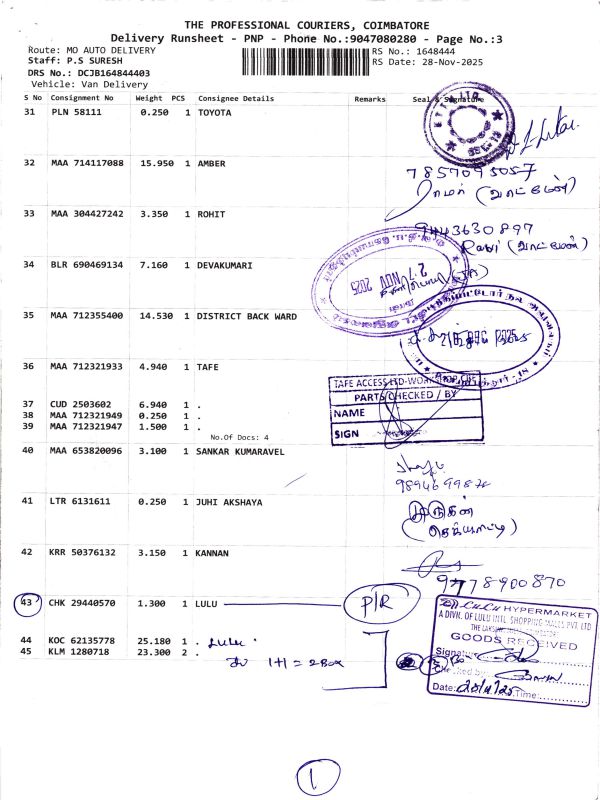 THE PROFESSIONAL COURIERS, COIMBATORE
Delivery Runsheet - PNP - Phone No.:9047080280 - Page No.:3
Route: MO AUTO DELIVERY
RS No.: 1648444
Staff: P.S SURESH
RS Date: 28-Nov-2025
DRS No.: DCJB164844403
Vehicle: Van Delivery
S No Consignment No Weight PCS Consignee Details Remarks Seal & Signature
31 PLN 58111 0.250 1 TOYOTA
32 MAA 714117088 15.950 1 AMBER
7857095057
33 MAA 304427242 3.350 1 ROHIT
9443630897
Ravi (வாட்மேன்)
34 BLR 690469134 7.160 1 DEVAKUMARI
27 NOV 2025
35 MAA 712355400 14.530 1 DISTRICT BACK WARD
36 MAA 712321933 4.940 1 TAFE
TAFE ACCESS LTD-WORKSHOP CBE
PARTS CHECKED / BY
NAME
SIGN
37 CUD 2503602 6.940 1 .
38 MAA 712321949 0.250 1 .
39 MAA 712321947 1.500 1 .
No.Of Docs: 4
40 MAA 653820096 3.100 1 SANKAR KUMARAVEL
41 LTR 6131611 0.250 1 JUHI AKSHAYA
முருகன்
42 KRR 50376132 3.150 1 KANNAN
9778900870
43 CHK 29440570 1.300 1 LULU P/R
LULU HYPERMARKET
A DIVN. OF LULU INTL SHOPPING MALLS PVT. LTD
GOODS RECEIVED
44 KOC 62135778 25.180 1 . Lulu
45 KLM 1280718 23.300 2 .
1+1 = 2 Box
Signature
Checked by:
Date: Time:
1